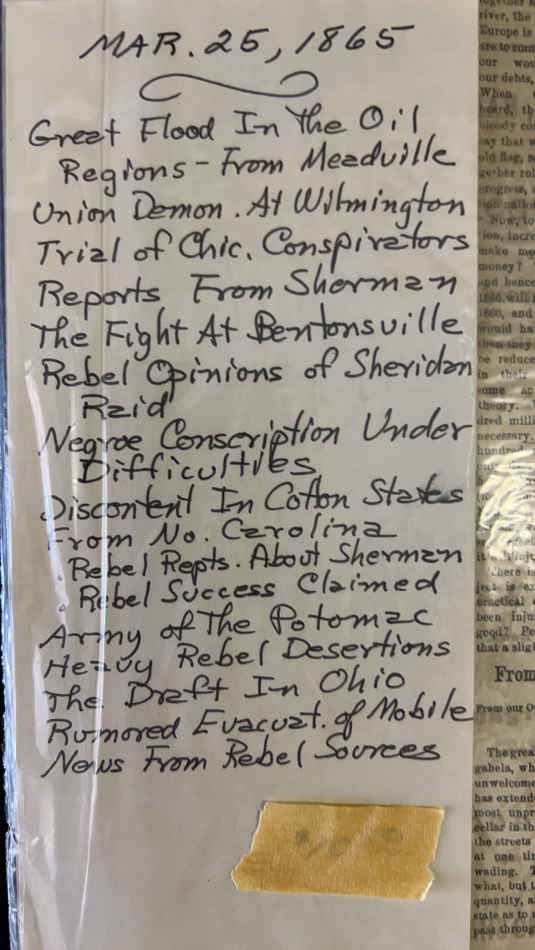 MAR. 25, 1865
Great Flood In The Oil
Regions - From Meadville
Union Demon. At Wilmington
Trial of Chic. Conspirators
Reports From Sherman
The Fight At Bentonsville
Rebel Opinions of Sheridan
Raid
Negroe Conscription Under
Difficulties
Discontent In Cotton States
From No. Carolina
. Rebel Repts. About Sherman
. Rebel Success Claimed
Army of The Potomac
Heavy Rebel Desertions
The Draft In Ohio
Rumored Evacuat. of Mobile
News From Rebel Sources
river, the
Europe is
our
our debts,
When
heard, th
say that w
old flag, a
progress,
Now, to
make
money?
and hence
1866 will
1860, and
would ha
than they
be reduce
in their
some
theory.
dred milli
necessary.
hundred
There is
practical
been inju
good? Pe
that a slig
From
From our O
The grea
gabela, wh
unwelcome
has extend
most unpr
cellar in th
the streets
at one tim
wading. T
what, but t
quantity, a
state as to
pass throug